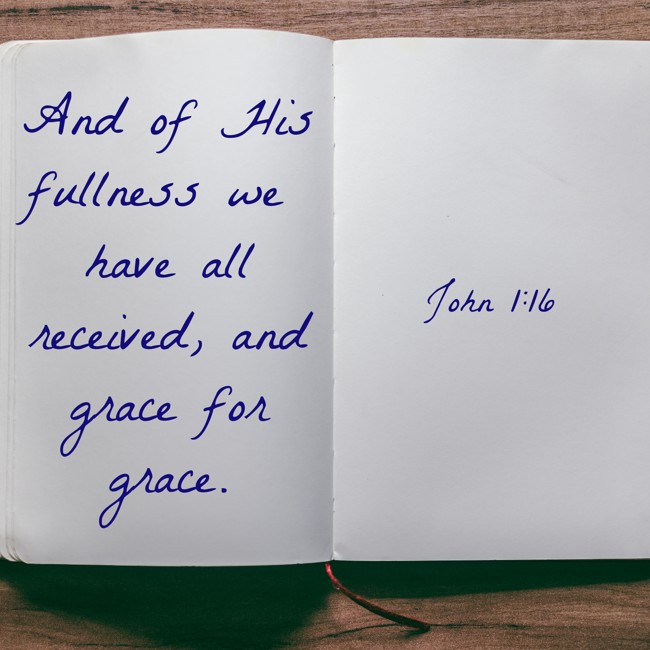 And of His
fullness we
have all
received, and
grace for
grace.
John 1:16